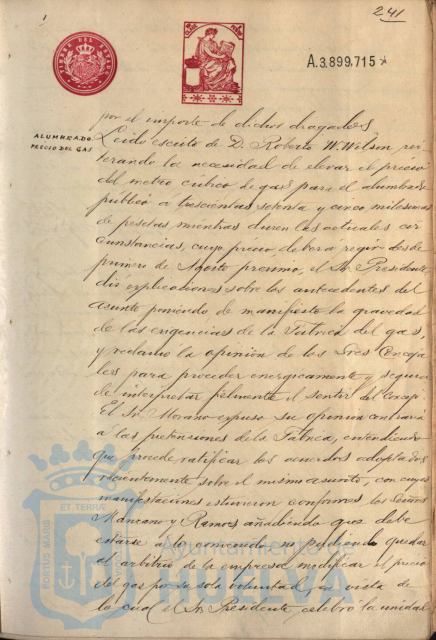 241
TIMBRE DEL ESTADO
A.3.899,715
por el importe de dichos dragados
ALUMBRADO
PRECIO DEL GAS
Leido escrito de D. Roberto W. Wilson rei-
terando la necesidad de elevar el precio
del metro cúbico de gas para el alumbrado
público a trescientas setenta y cinco milesimas
de pesetas, mientras duren las actuales cir
cunstancias, cuyo precio deberá regir desde
primero de Agosto proximo, el Sr. Presidente
dió explicaciones sobre los antecedentes del
asunto poniendo de manifiesto la gravedad
de las exigencias de la Fabrica del gas,
y reclamó la opinión de los Sres Conceja
les para proceder energicamente y seguro
de interpretar fielmente el sentir del Concejo.
El Sr. Morano expuso su opinión contraria
a las pretensiones de la Fabrica, entendiendo
que procede ratificar los acuerdos adoptados
recientemente sobre el mismo asunto, con cuyas
manifestaciones estuvieron conformes los Señores
Manzano y Ramos añadiendo que debe
estarse a lo convenido no pudiendo quedar
al arbitrio de la empresa modificar el precio
del gas por su sola voluntad, en vista de
lo cual el Sr. Presidente, celebró la unidad
PORTUS MARIS ET TERRAE
Ayuntamiento de
HUELVA